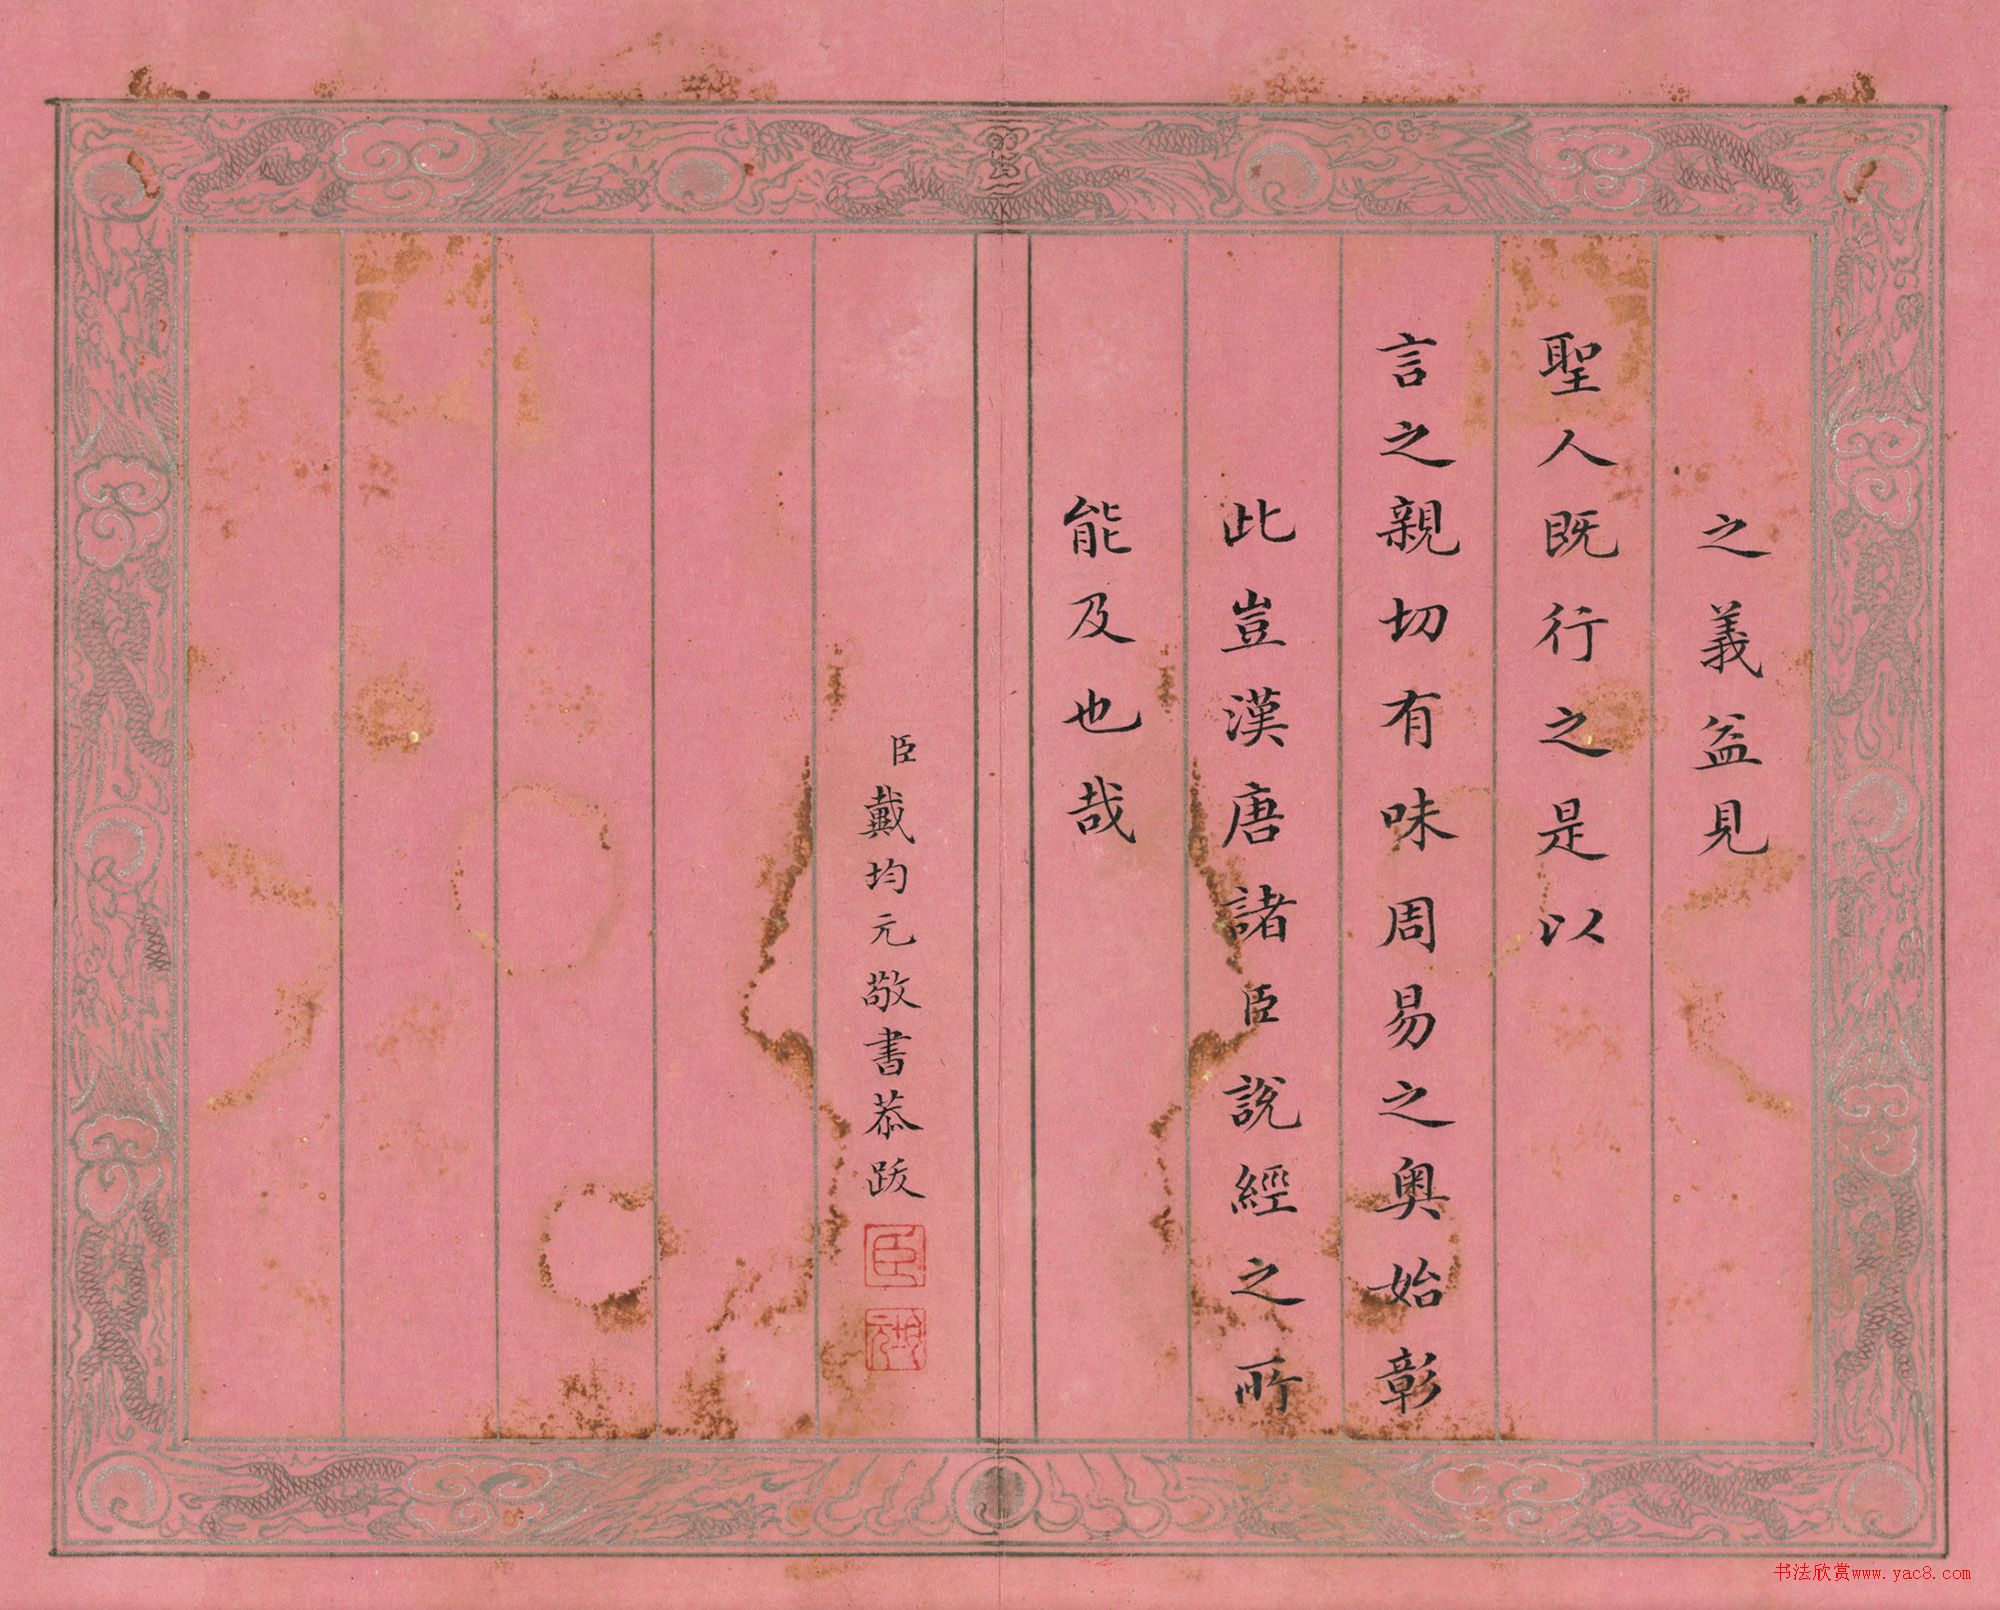 之義益見
聖人既行之是以
言之親切有味周易之奧始彰
此豈漢唐諸臣說經之所
能及也哉
臣戴均元敬書恭跋
臣
書法欣赏www.yac8.com